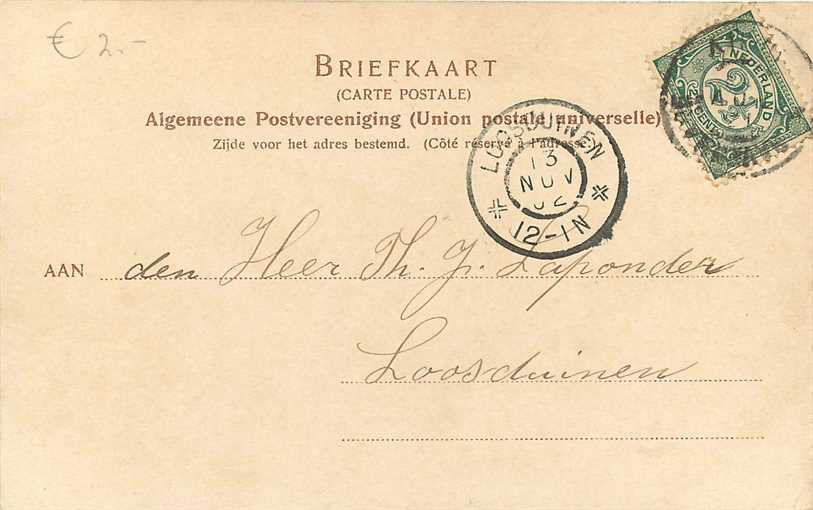 € 2.-
BRIEFKAART
(CARTE POSTALE)
Algemeene Postvereeniging (Union postale universelle)
Zijde voor het adres bestemd. (Côté réservé à l'adresse.)
NEDERLAND
2½
LOOSDUINEN
13
NOV
02
12-1N
AAN den Heer Th. J. Zaponder
Loosduinen